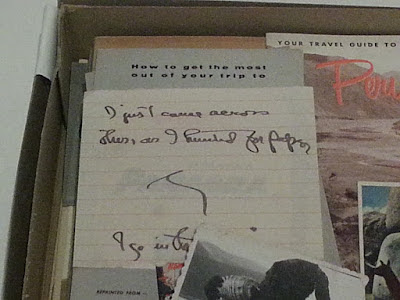 How to get the most
out of your trip to
YOUR TRAVEL GUIDE TO
Peru
I just came across
these, as I hunted for
I go in
REPRINTED FROM—